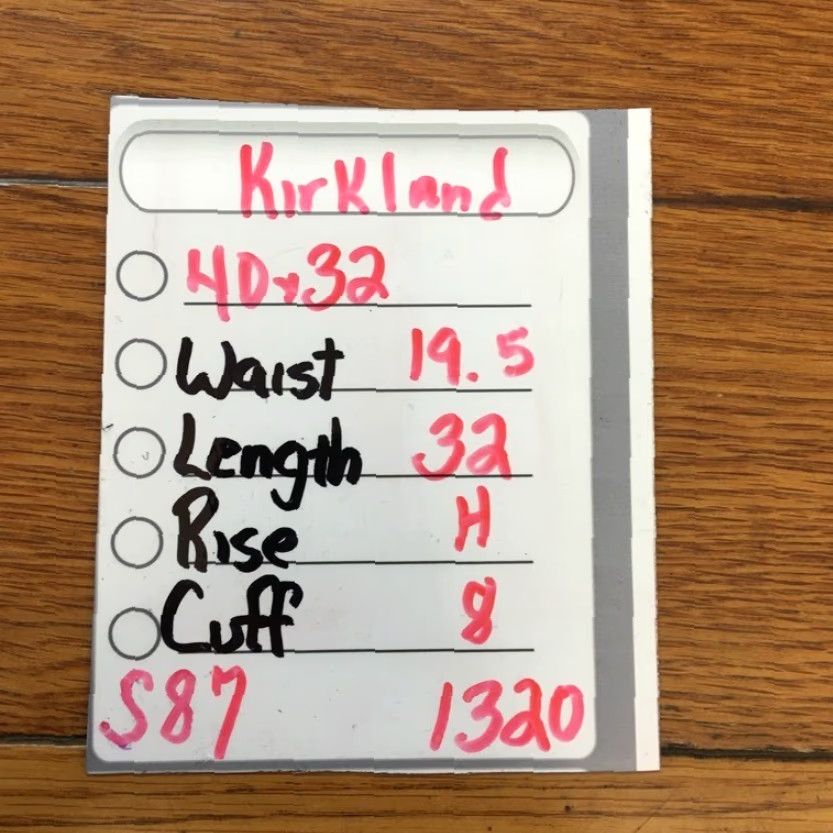 Kirkland
40x32
Waist 19.5
Length 32
Rise H
Cuff 8
S87 1320